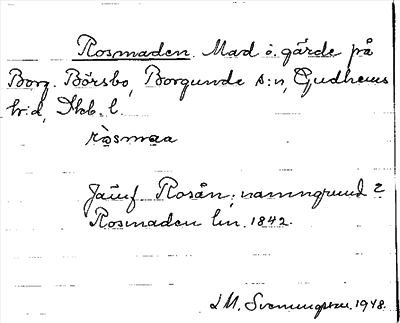 Rosmaden. Mad o. gärde på
Borg. Börsbo, Borgunda s:n, Gudhems
h:d, Skb. l.
ròsmaa
Jämf Rosån; namngrund?
Rosmaden lm. 1842.
J.M. Svenungsson 1948.